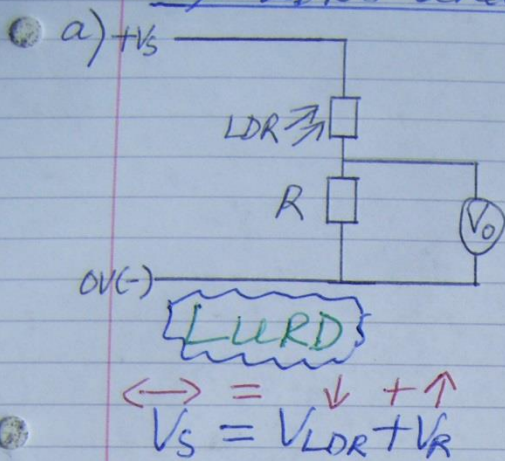 a) +Vs
LDR
R
Vo
0V(-)
LURD
↔ = ↓ + ↑
Vs = VLDR + VR